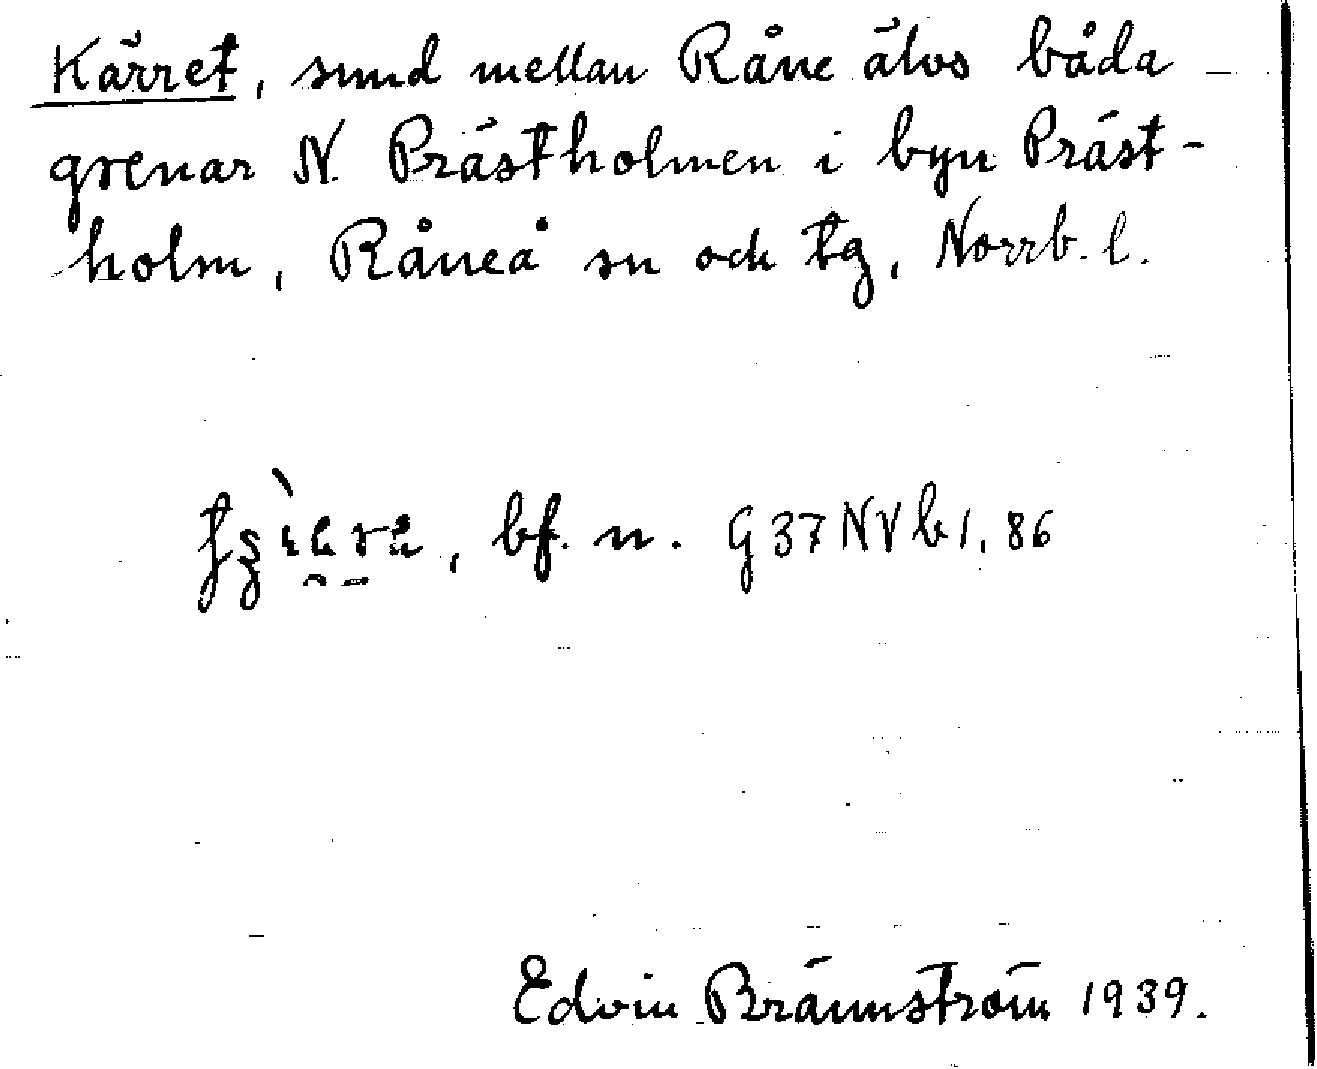 Kärret, sund mellan Råne älvs båda
grenar N. Prästholmen i byn Präst-
holm, Råneå sn och tg, Norrb. l.
bf. n. G 37 NV b 1, 86
Edvin Brännström 1939.